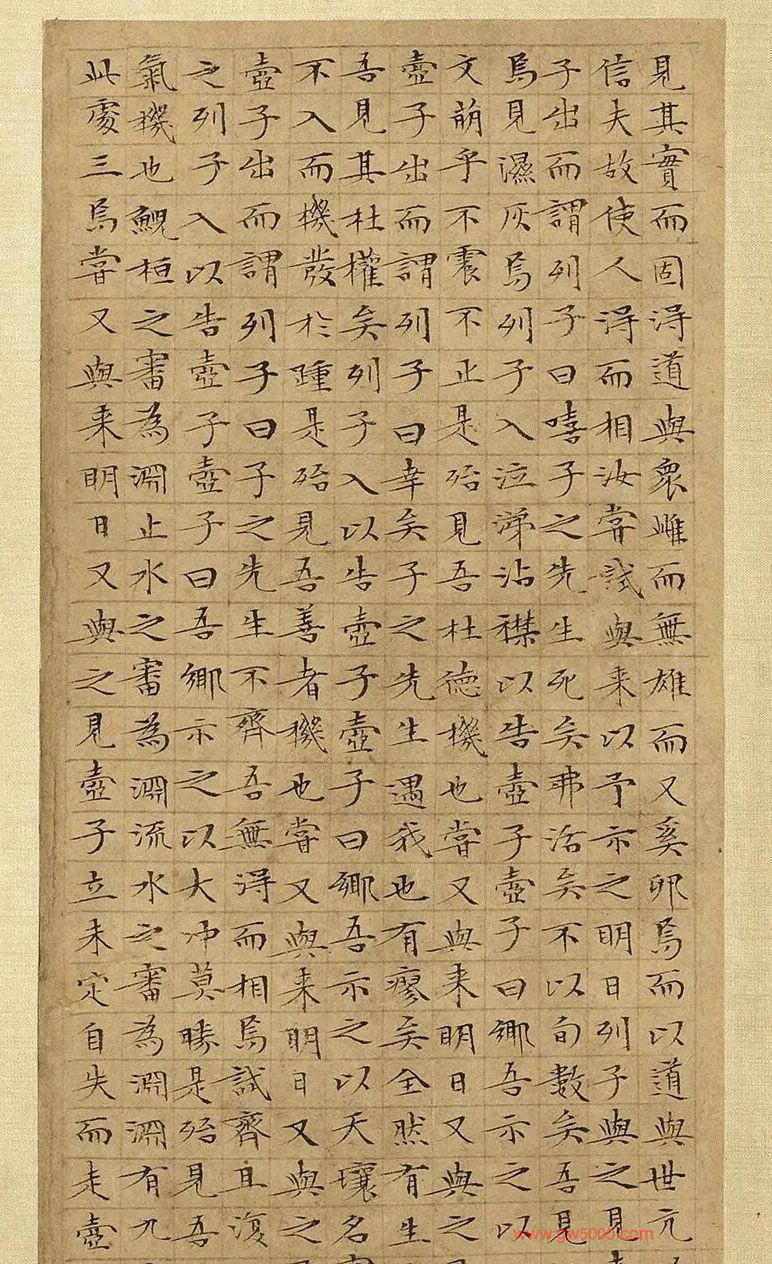 見其實而固淂道與衆雌而無雄而又奚卵焉而以道與世亢
信夫故使人淂而相汝甞試與来以予示之明日列子與之見
子出而謂列子曰嘻子之先生死矣弗活矣不以旬數矣吾見
焉見濕灰焉列子入泣涕沾襟以告壺子壺子曰鄉吾示之以
文萌乎不震不止是殆見吾杜德機也甞又與来明日又與之
壺子出而謂列子曰幸矣子之先生遇我也有瘳矣全然有生
吾見其杜權矣列子入以告壺子壺子曰鄉吾示之以天壤名
不入而機發於踵是殆見吾善者機也甞又與来明日又與之
壺子出而謂列子曰子之先生不齊吾無淂而相焉試齊且復
之列子入以告壺子壺子曰吾鄉示之以大冲莫勝是殆見吾
氣機也鯢桓之審為淵止水之審為淵流水之審為淵淵有九
此處三焉甞又與来明日又與之見壺子立未定自失而走壺
www.gw5000.com